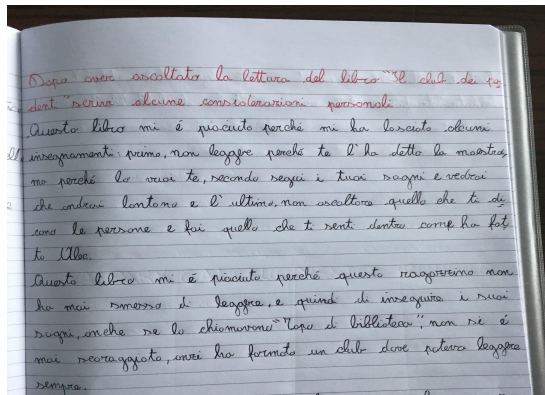 Dopo avere ascoltato la lettura del libro "Il club dei per
denti" scrivi alcune considerazioni personali.
Questo libro mi é piaciuto perché mi ha lasciato alcuni
insegnamenti: primo, non leggere perché te l'ha detto la maestra,
ma perché lo vuoi te, secondo segui i tuoi sogni e vedrai
che andrai lontano e l'ultimo, non ascoltare quello che ti di
cono le persone e fai quello che ti senti dentro come ha fat
to Alec.
Questo libro mi é piaciuto perché questo ragazzino non
ha mai smesso di leggere, e quindi di inseguire i suoi
sogni, anche se lo chiamavano "Topo di biblioteca", non si é
mai scoraggiato, anzi ha formato un club dove poteva leggere
sempre.